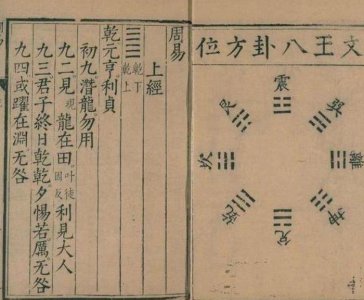 文王八卦方位
震
離
坤
兌
乾
坎
艮
周易
上經
乾下乾上
乾元亨利貞
初九潛龍勿用
九二見現龍在田叶徒因反利見大人
九三君子終日乾乾夕惕若厲无咎
九四或躍在淵无咎